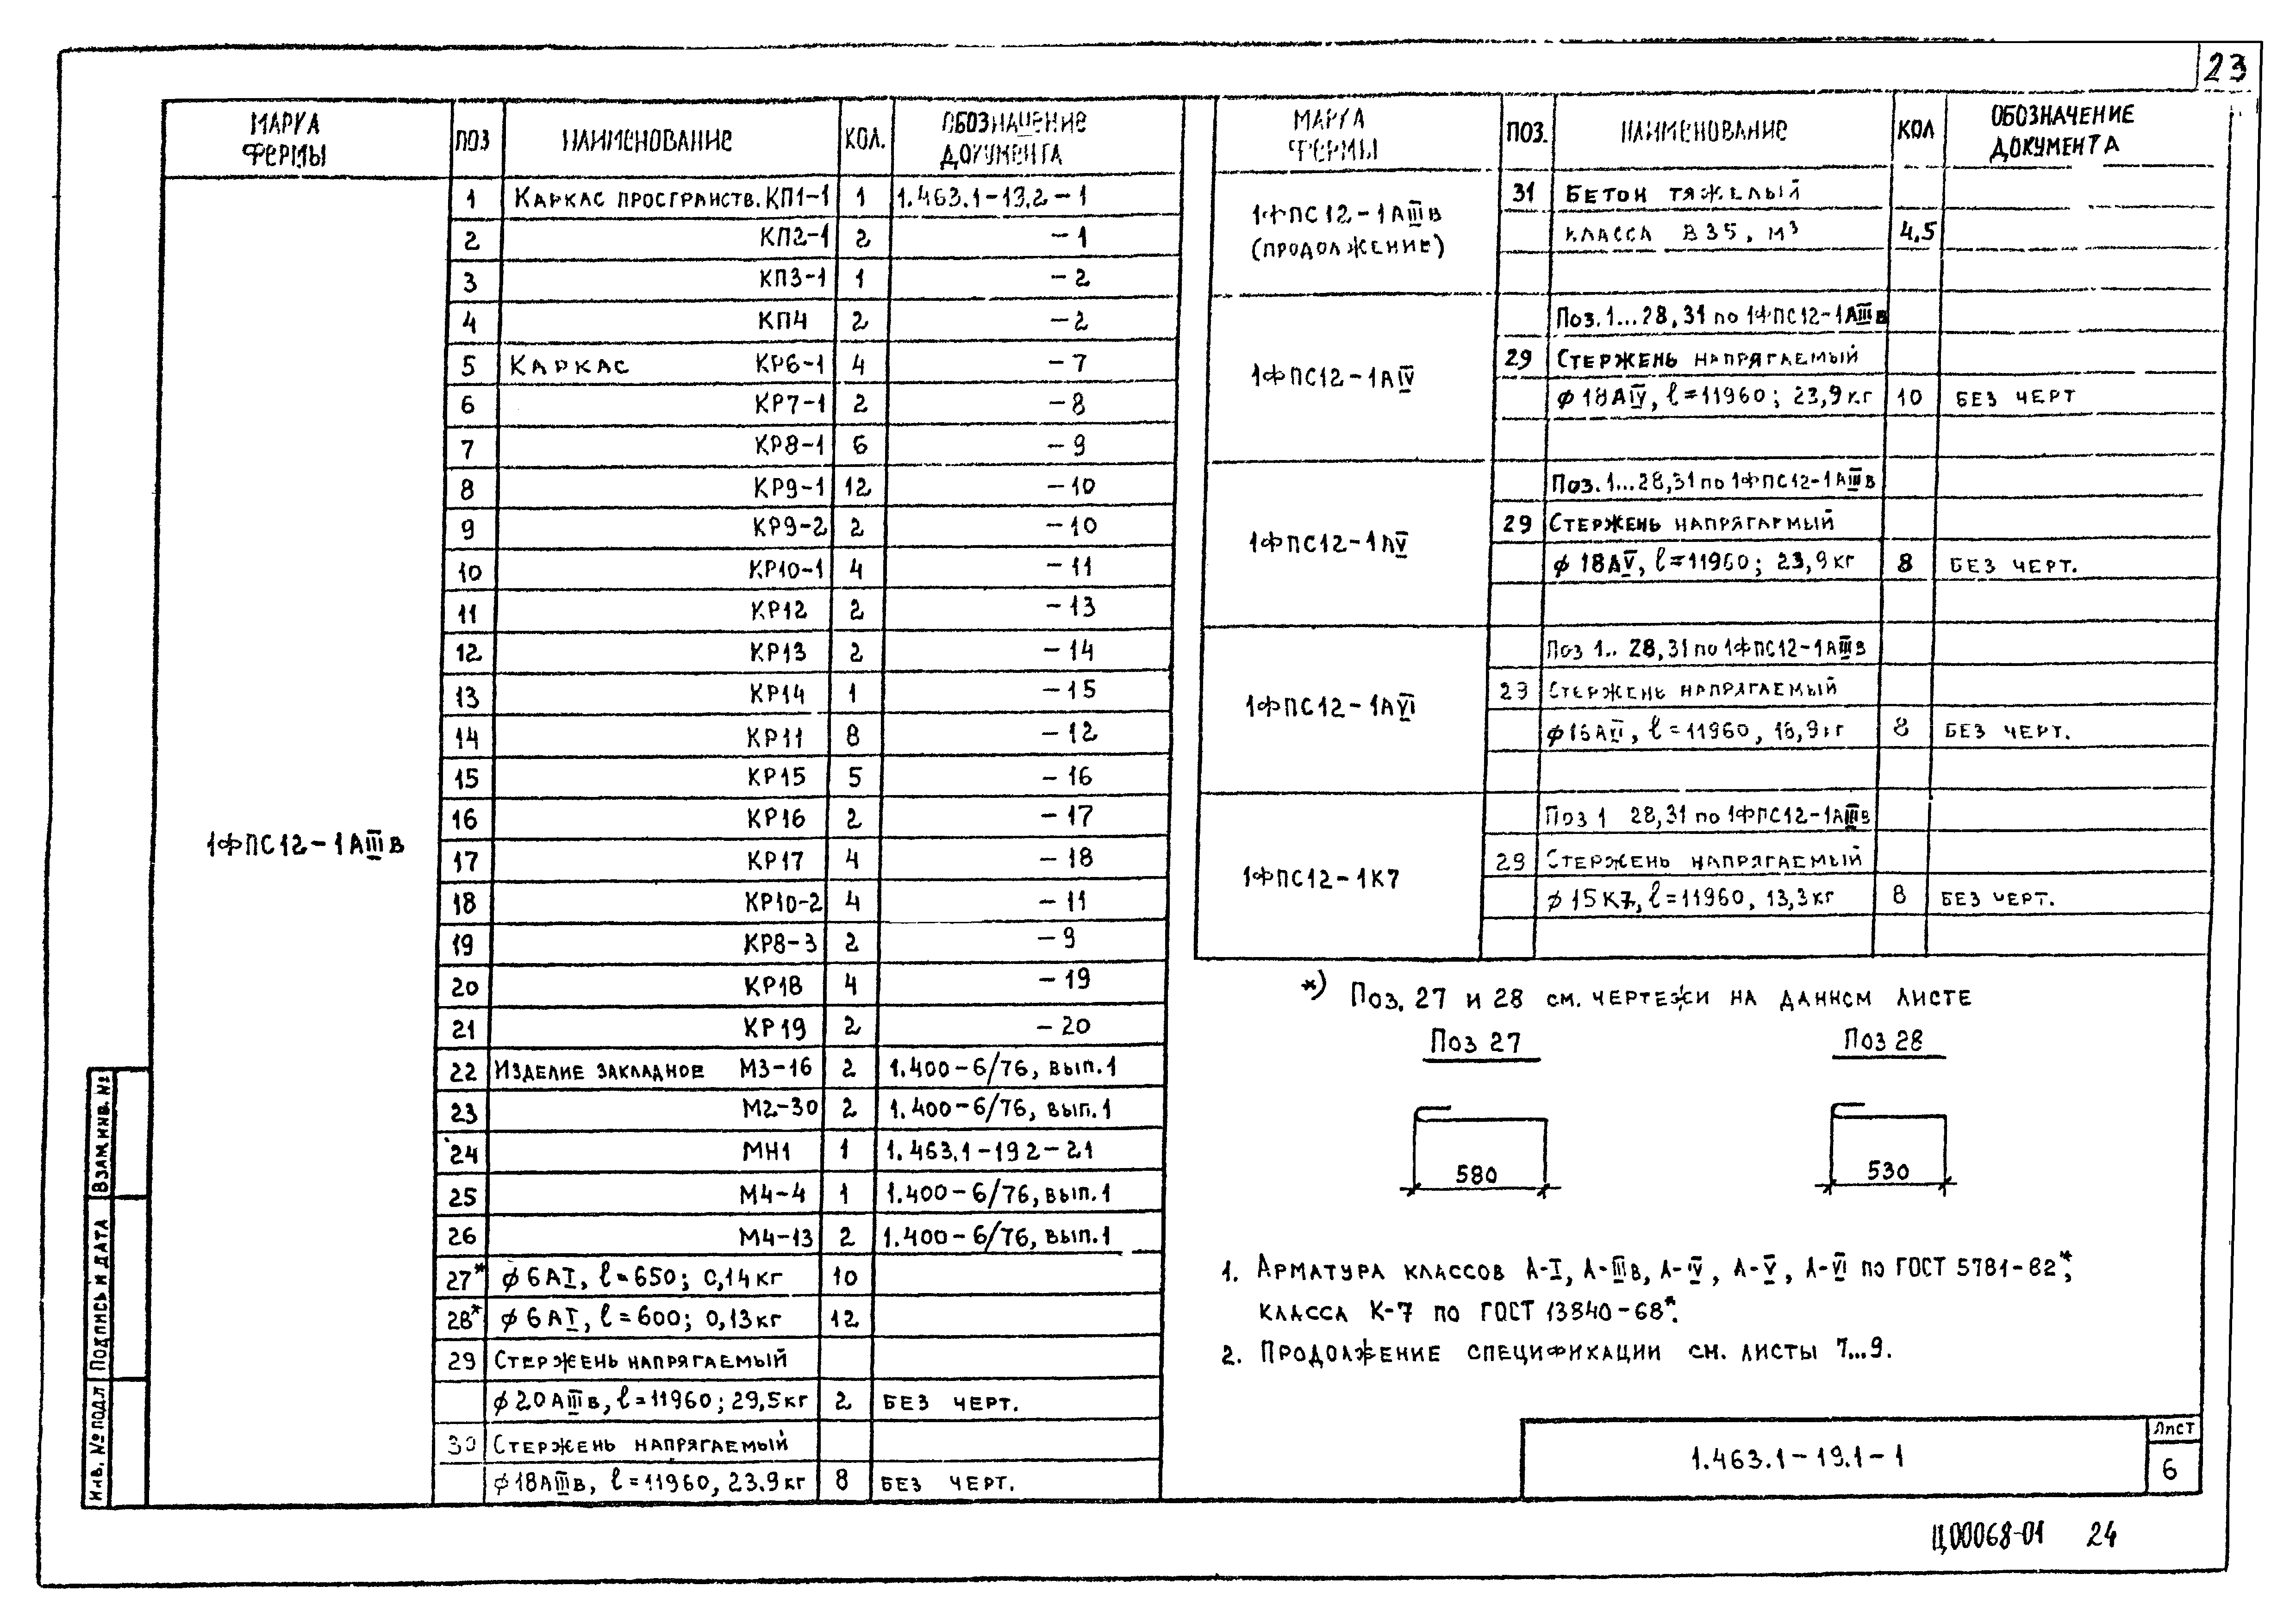 23
МАРКА ФЕРМЫ ПОЗ НАИМЕНОВАНИЕ КОЛ. ОБОЗНАЧЕНИЕ ДОКУМЕНТА
1ФПС12-1АIIIв
1 КАРКАС ПРОСТРАНСТВ. КП1-1 1 1.463.1-19.2-1
2 КП2-1 2 -1
3 КП3-1 1 -2
4 КП4 2 -2
5 КАРКАС КР6-1 4 -7
6 КР7-1 2 -8
7 КР8-1 6 -9
8 КР9-1 12 -10
9 КР9-2 2 -10
10 КР10-1 4 -11
11 КР12 2 -13
12 КР13 2 -14
13 КР14 1 -15
14 КР11 8 -12
15 КР15 5 -16
16 КР16 2 -17
17 КР17 4 -18
18 КР10-2 4 -11
19 КР8-3 2 -9
20 КР18 4 -19
21 КР19 2 -20
22 ИЗДЕЛИЕ ЗАКЛАДНОЕ М3-16 2 1.400-6/76, ВЫП.1
23 М2-30 2 1.400-6/76, ВЫП.1
24 МН1 1 1.463.1-19 2-21
25 М4-4 1 1.400-6/76, ВЫП.1
26 М4-13 2 1.400-6/76, ВЫП.1
27* φ6АI, ℓ=650; 0,14кг 10
28* φ6АI, ℓ=600; 0,13кг 12
29 СТЕРЖЕНЬ НАПРЯГАЕМЫЙ
φ20АIIIв, ℓ=11960; 29,5кг 2 БЕЗ ЧЕРТ.
30 СТЕРЖЕНЬ НАПРЯГАЕМЫЙ
φ18АIIIв, ℓ=11960, 23.9кг 8 БЕЗ ЧЕРТ.
МАРКА ФЕРМЫ ПОЗ. НАИМЕНОВАНИЕ КОЛ ОБОЗНАЧЕНИЕ ДОКУМЕНТА
1ФПС12-1АIIIв
(ПРОДОЛЖЕНИЕ)
31 БЕТОН ТЯЖЕЛЫЙ
КЛАССА В35, М³ 4,5
1ФПС12-1АIV
Поз. 1...28,31 по 1ФПС12-1АIIIв
29 СТЕРЖЕНЬ НАПРЯГАЕМЫЙ
φ18АIV, ℓ=11960; 23,9кг 10 БЕЗ ЧЕРТ
1ФПС12-1АV
Поз. 1...28,31 по 1ФПС12-1АIIIв
29 СТЕРЖЕНЬ НАПРЯГАЕМЫЙ
φ18АV, ℓ=11960; 23,9кг 8 БЕЗ ЧЕРТ.
1ФПС12-1АVI
Поз 1.. 28,31 по 1ФПС12-1АIIIв
29 СТЕРЖЕНЬ НАПРЯГАЕМЫЙ
φ16АVI, ℓ=11960, 18,9кг 8 БЕЗ ЧЕРТ.
1ФПС12-1К7
Поз 1 28,31 по 1ФПС12-1АIIIв
29 СТЕРЖЕНЬ НАПРЯГАЕМЫЙ
φ15К7, ℓ=11960, 13,3кг 8 БЕЗ ЧЕРТ.
*) ПОЗ. 27 И 28 СМ. ЧЕРТЕЖИ НА ДАННОМ ЛИСТЕ
ПОЗ 27 ПОЗ 28
580 530
1. АРМАТУРА КЛАССОВ А-I, А-IIIв, А-IV, А-V, А-VI ПО ГОСТ 5781-82*,
КЛАССА К-7 ПО ГОСТ 13840-68*.
2. ПРОДОЛЖЕНИЕ СПЕЦИФИКАЦИИ СМ. ЛИСТЫ 7...9.
ИНВ. № ПОДЛ ПОДПИСЬ И ДАТА ВЗАМ.ИНВ. №
1.463.1-19.1-1
ЛИСТ
6
Ц00068-01 24